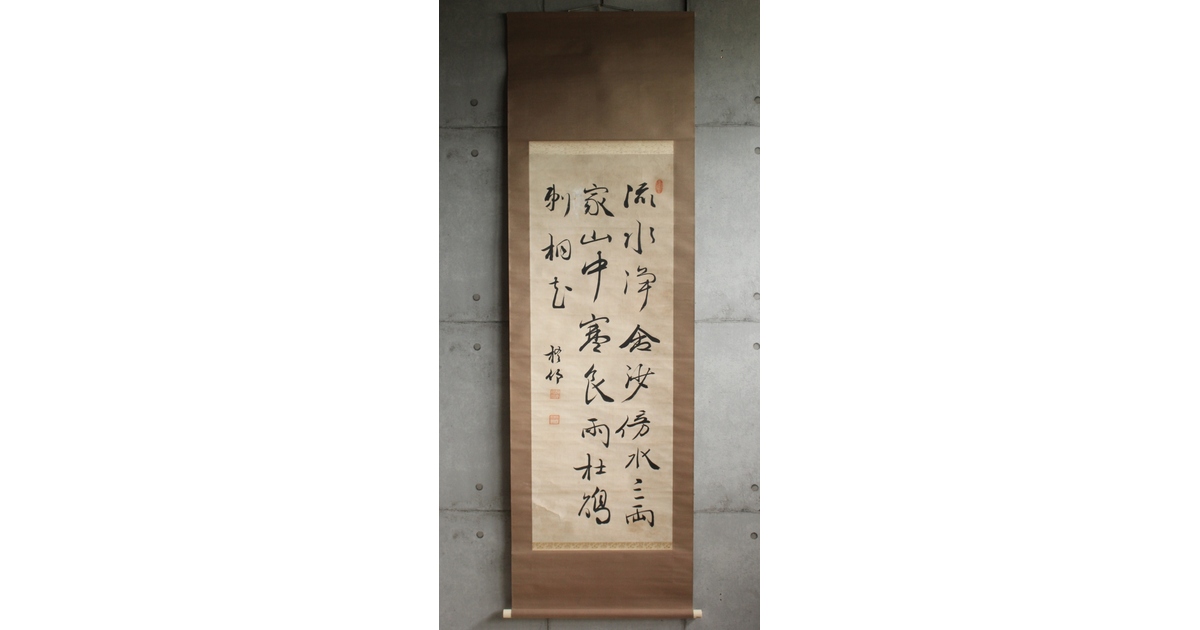 流水浄舎沙傍水三両
家山中寒食雨杜鵑
刺桐花